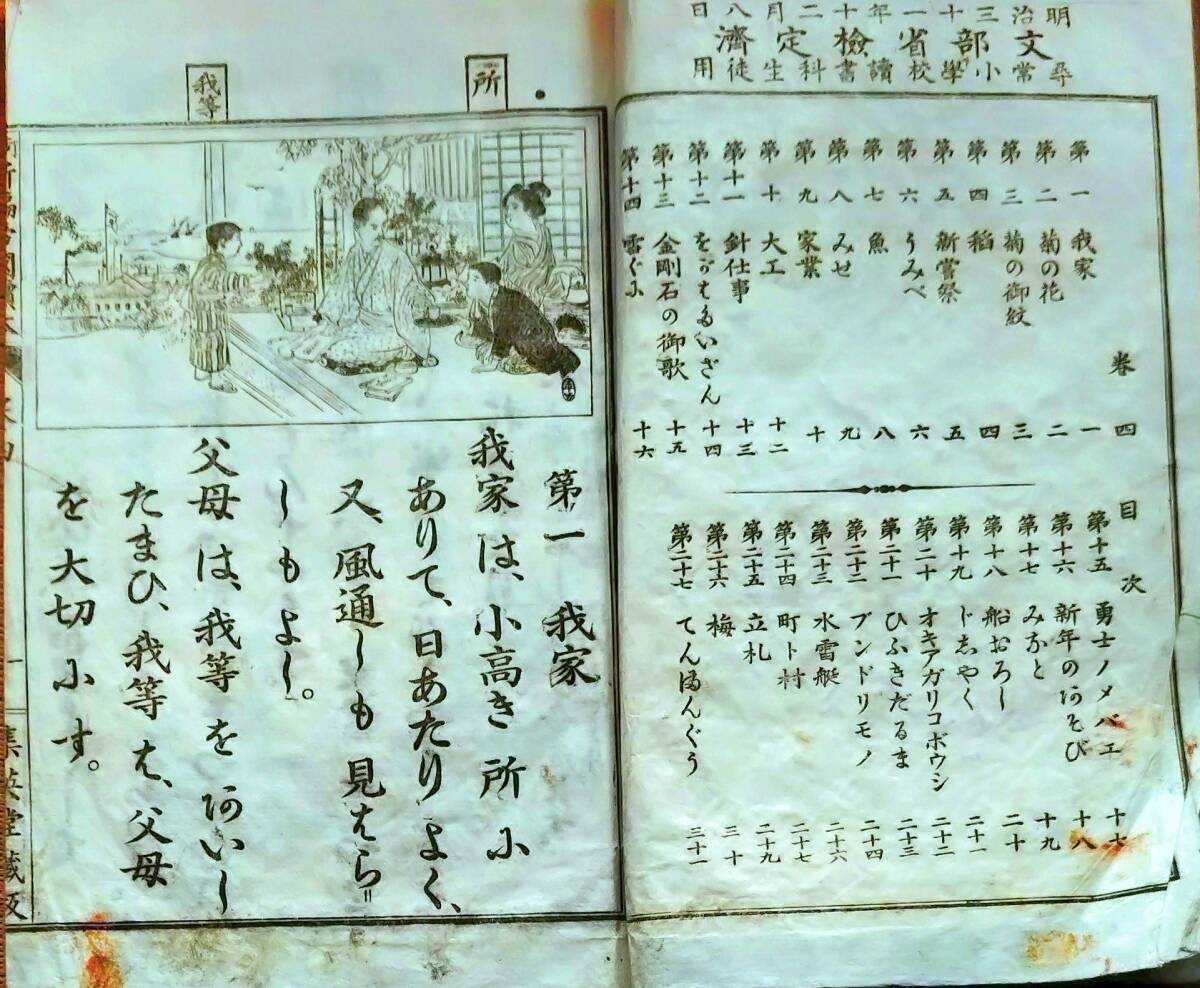 明治三十一年十二月八日
文部省檢定濟
尋常小學校讀書科生徒用
卷四 目次
第一 我家 一
第二 菊の花 二
第三 菊の御紋 三
第四 稻 四
第五 新嘗祭 五
第六 うみべ 六
第七 魚 八
第八 みせ 九
第九 家業 十
第十 大工 十二
第十一 針仕事 十三
第十二 をがはたいざん 十四
第十三 金剛石の御歌 十五
第十四 雪ぐに 十六
第十五 勇士ノメバエ 十七
第十六 新年のあそび 十八
第十七 みかと 十九
第十八 船おろし 二十
第十九 じしやく 二十一
第二十 オキアガリコボウシ 二十二
第二十一 ひふきだるま 二十三
第二十二 ブンドリモノ 二十四
第二十三 水雷艇 二十六
第二十四 町ト村 二十七
第二十五 立札 二十九
第二十六 梅 三十
第二十七 てんまんぐう 三十一
所
我等
第一 我家
我家は、小高き所に
ありて、日あたりよく、
又、風通しも見はら=
しもよし。
父母は、我等をあいし
たまひ、我等は、父母
を大切にす。
一
集英堂藏版